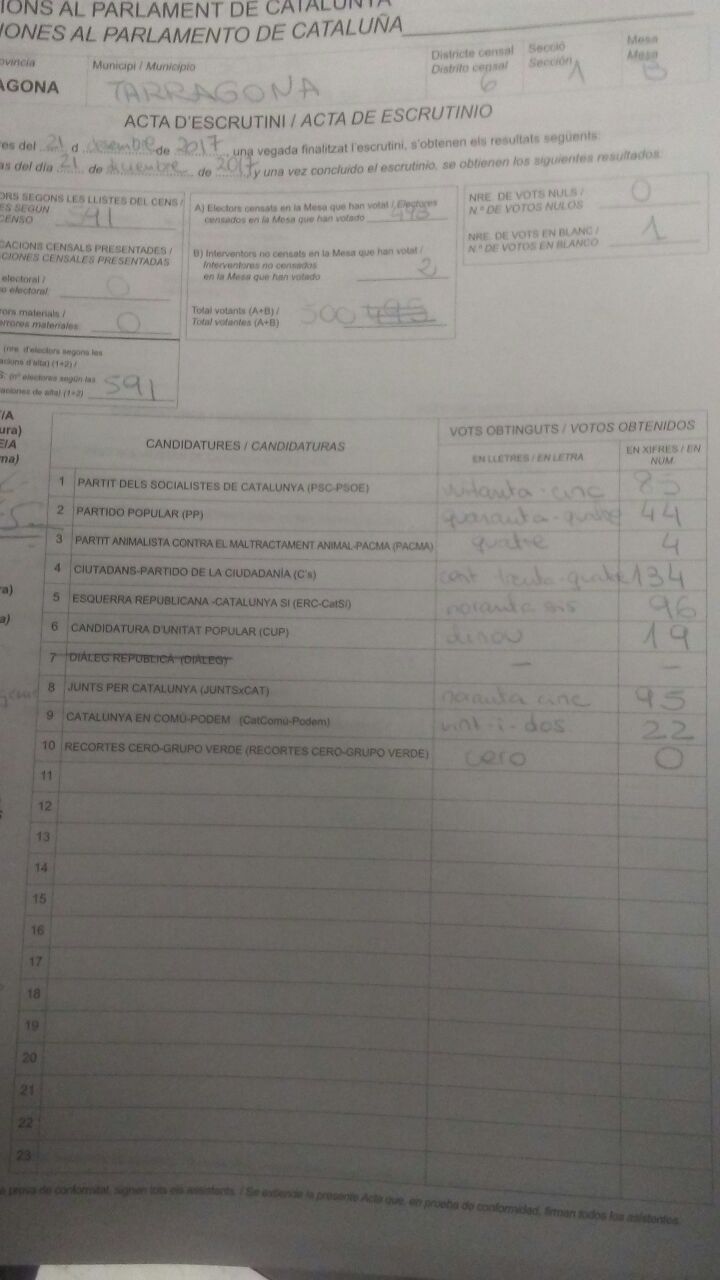 IONS AL PARLAMENT DE CATALUNYA
IONES AL PARLAMENTO DE CATALUÑA
ovincia
AGONA
Municipi / Municipio
TARRAGONA
Districte censal
Distrito censal
6
Secció
Sección
1
Mesa
Mesa
B
ACTA D'ESCRUTINI / ACTA DE ESCRUTINIO
res del 21 d desembre de 2017, una vegada finalitzat l'escrutini, s'obtenen els resultats següents:
as del día 21 de diciembre de 2017 y una vez concluido el escrutinio, se obtienen los siguientes resultados:
ORS SEGONS LES LLISTES DEL CENS /
ES SEGÚN
CENSO 591
CACIONS CENSALS PRESENTADES /
CIONES CENSALES PRESENTADAS
electoral /
o electoral: 0
rors materials /
errores materiales: 0
(nre. d'electors segons les
acions d'alta) (1+2) /
S: (nº electores según las
aciones de alta) (1+2) 591
A) Electors censats en la Mesa que han votat / Electores
censados en la Mesa que han votado
B) Interventors no censats en la Mesa que han votat /
Interventores no censados
en la Mesa que han votado 2
Total votants (A+B) /
Total votantes (A+B) 500
NRE. DE VOTS NULS /
N.º DE VOTOS NULOS 0
NRE. DE VOTS EN BLANC /
N.º DE VOTOS EN BLANCO 1
CANDIDATURES / CANDIDATURAS
VOTS OBTINGUTS / VOTOS OBTENIDOS
EN LLETRES / EN LETRA
EN XIFRES / EN NÚM.
1 PARTIT DELS SOCIALISTES DE CATALUNYA (PSC-PSOE) vuitanta-cinc 85
2 PARTIDO POPULAR (PP) quaranta-quatre 44
3 PARTIT ANIMALISTA CONTRA EL MALTRACTAMENT ANIMAL-PACMA (PACMA) quatre 4
4 CIUTADANS-PARTIDO DE LA CIUDADANÍA (C's) cent trenta-quatre 134
5 ESQUERRA REPUBLICANA -CATALUNYA SÍ (ERC-CatSí) noranta sis 96
6 CANDIDATURA D'UNITAT POPULAR (CUP) dinou 19
7 DIÀLEG REPUBLICÀ (DIÀLEG) — —
8 JUNTS PER CATALUNYA (JUNTSxCAT) noranta cinc 95
9 CATALUNYA EN COMÚ-PODEM (CatComú-Podem) vint-i-dos 22
10 RECORTES CERO-GRUPO VERDE (RECORTES CERO-GRUPO VERDE) cero 0
11
12
13
14
15
16
17
18
19
20
21
22
23
prova de conformitat, signen tots els assistents. / Se extiende la presente Acta que, en prueba de conformidad, firman todos los asistentes.